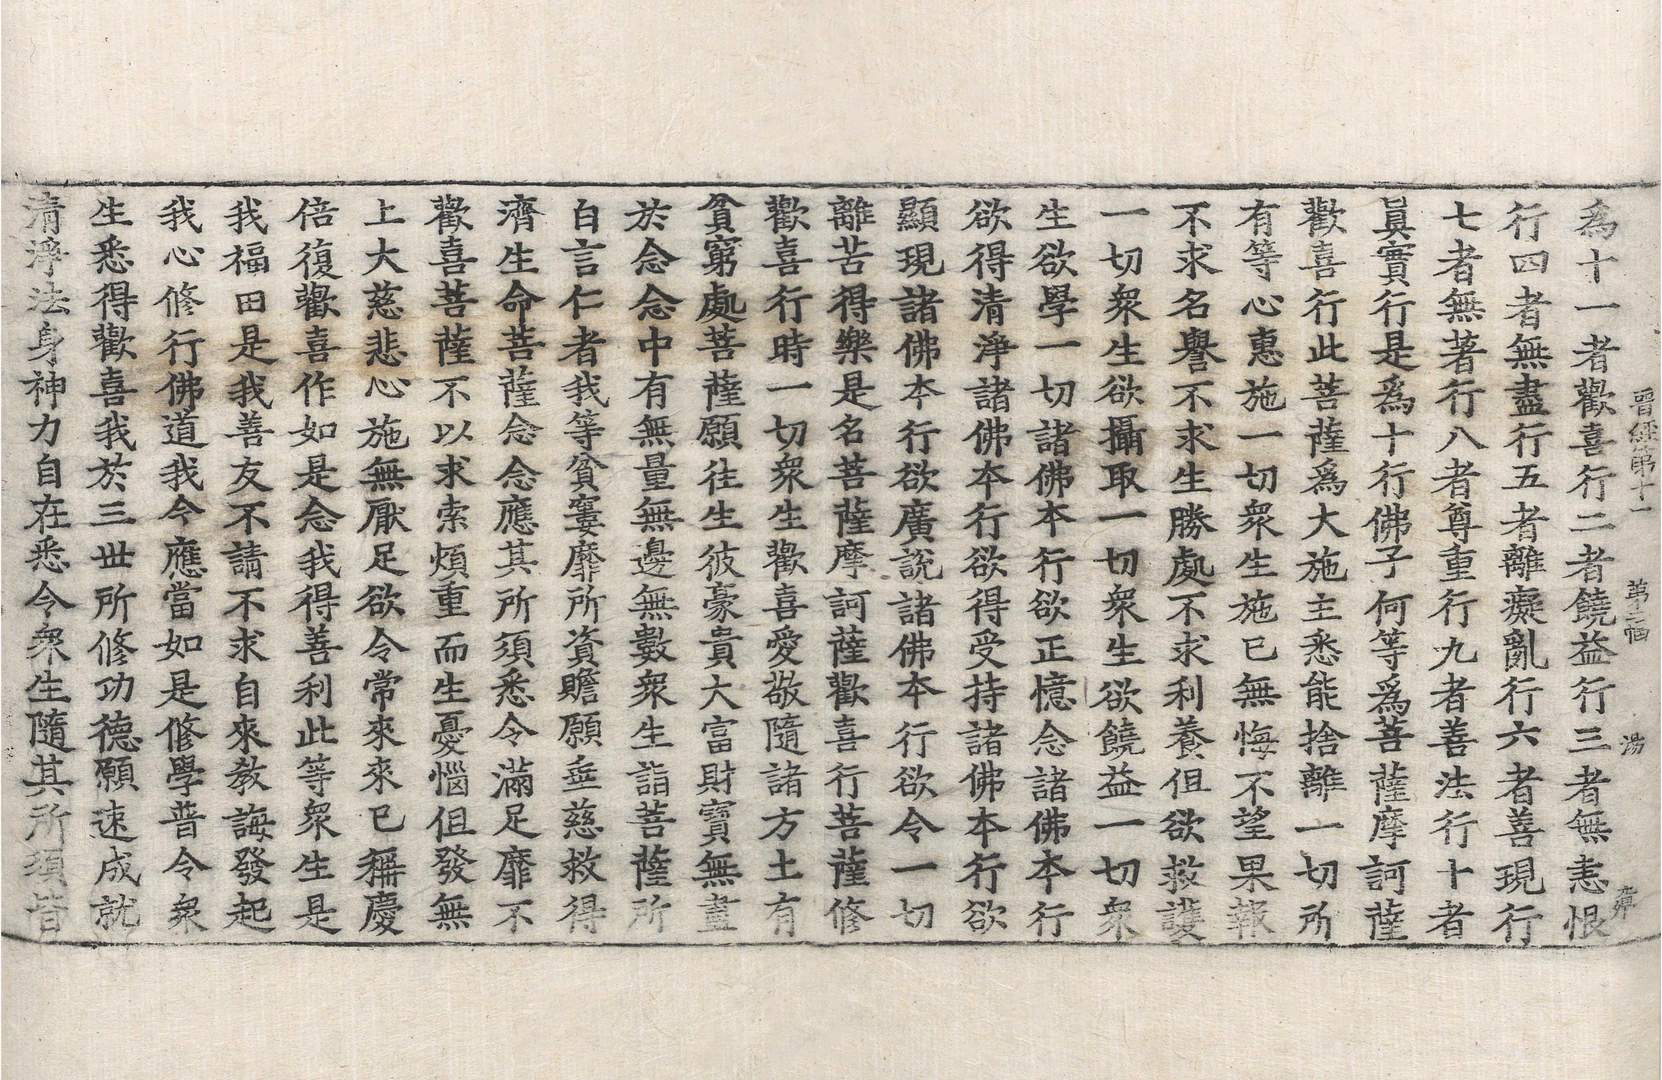 晋經第十一 第二幅 湯
為十一者歡喜行二者饒益行三者無恚恨
行四者無盡行五者離癡亂行六者善現行
七者無著行八者尊重行九者善法行十者
眞實行是爲十行佛子何等爲菩薩摩訶薩
歡喜行此菩薩爲大施主悉能捨離一切所
有等心惠施一切衆生施已無悔不望果報
不求名譽不求生勝處不求利養但欲救護
一切衆生欲攝取一切衆生欲饒益一切衆
生欲學一切諸佛本行欲正憶念諸佛本行
欲得清淨諸佛本行欲得受持諸佛本行欲
顯現諸佛本行欲廣說諸佛本行欲令一切
離苦得樂是名菩薩摩訶薩歡喜行菩薩修
歡喜行時一切衆生歡喜愛敬隨諸方土有
貧窮處菩薩願往生彼豪貴大富財寶無盡
於念念中有無量無邊無數衆生詣菩薩所
白言仁者我等貧窶靡所資贍願垂慈救得
濟生命菩薩念念應其所須悉令滿足靡不
歡喜菩薩不以求索煩重而生憂惱但發無
上大慈悲心施無厭足欲令常來來已稱慶
倍復歡喜作如是念我得善利此等衆生是
我福田是我善友不請不求自來教誨發起
我心修行佛道我今應當如是修學普令衆
生悉得歡喜我於三世所修功德願速成就
清淨法身神力自在悉令衆生隨其所須皆